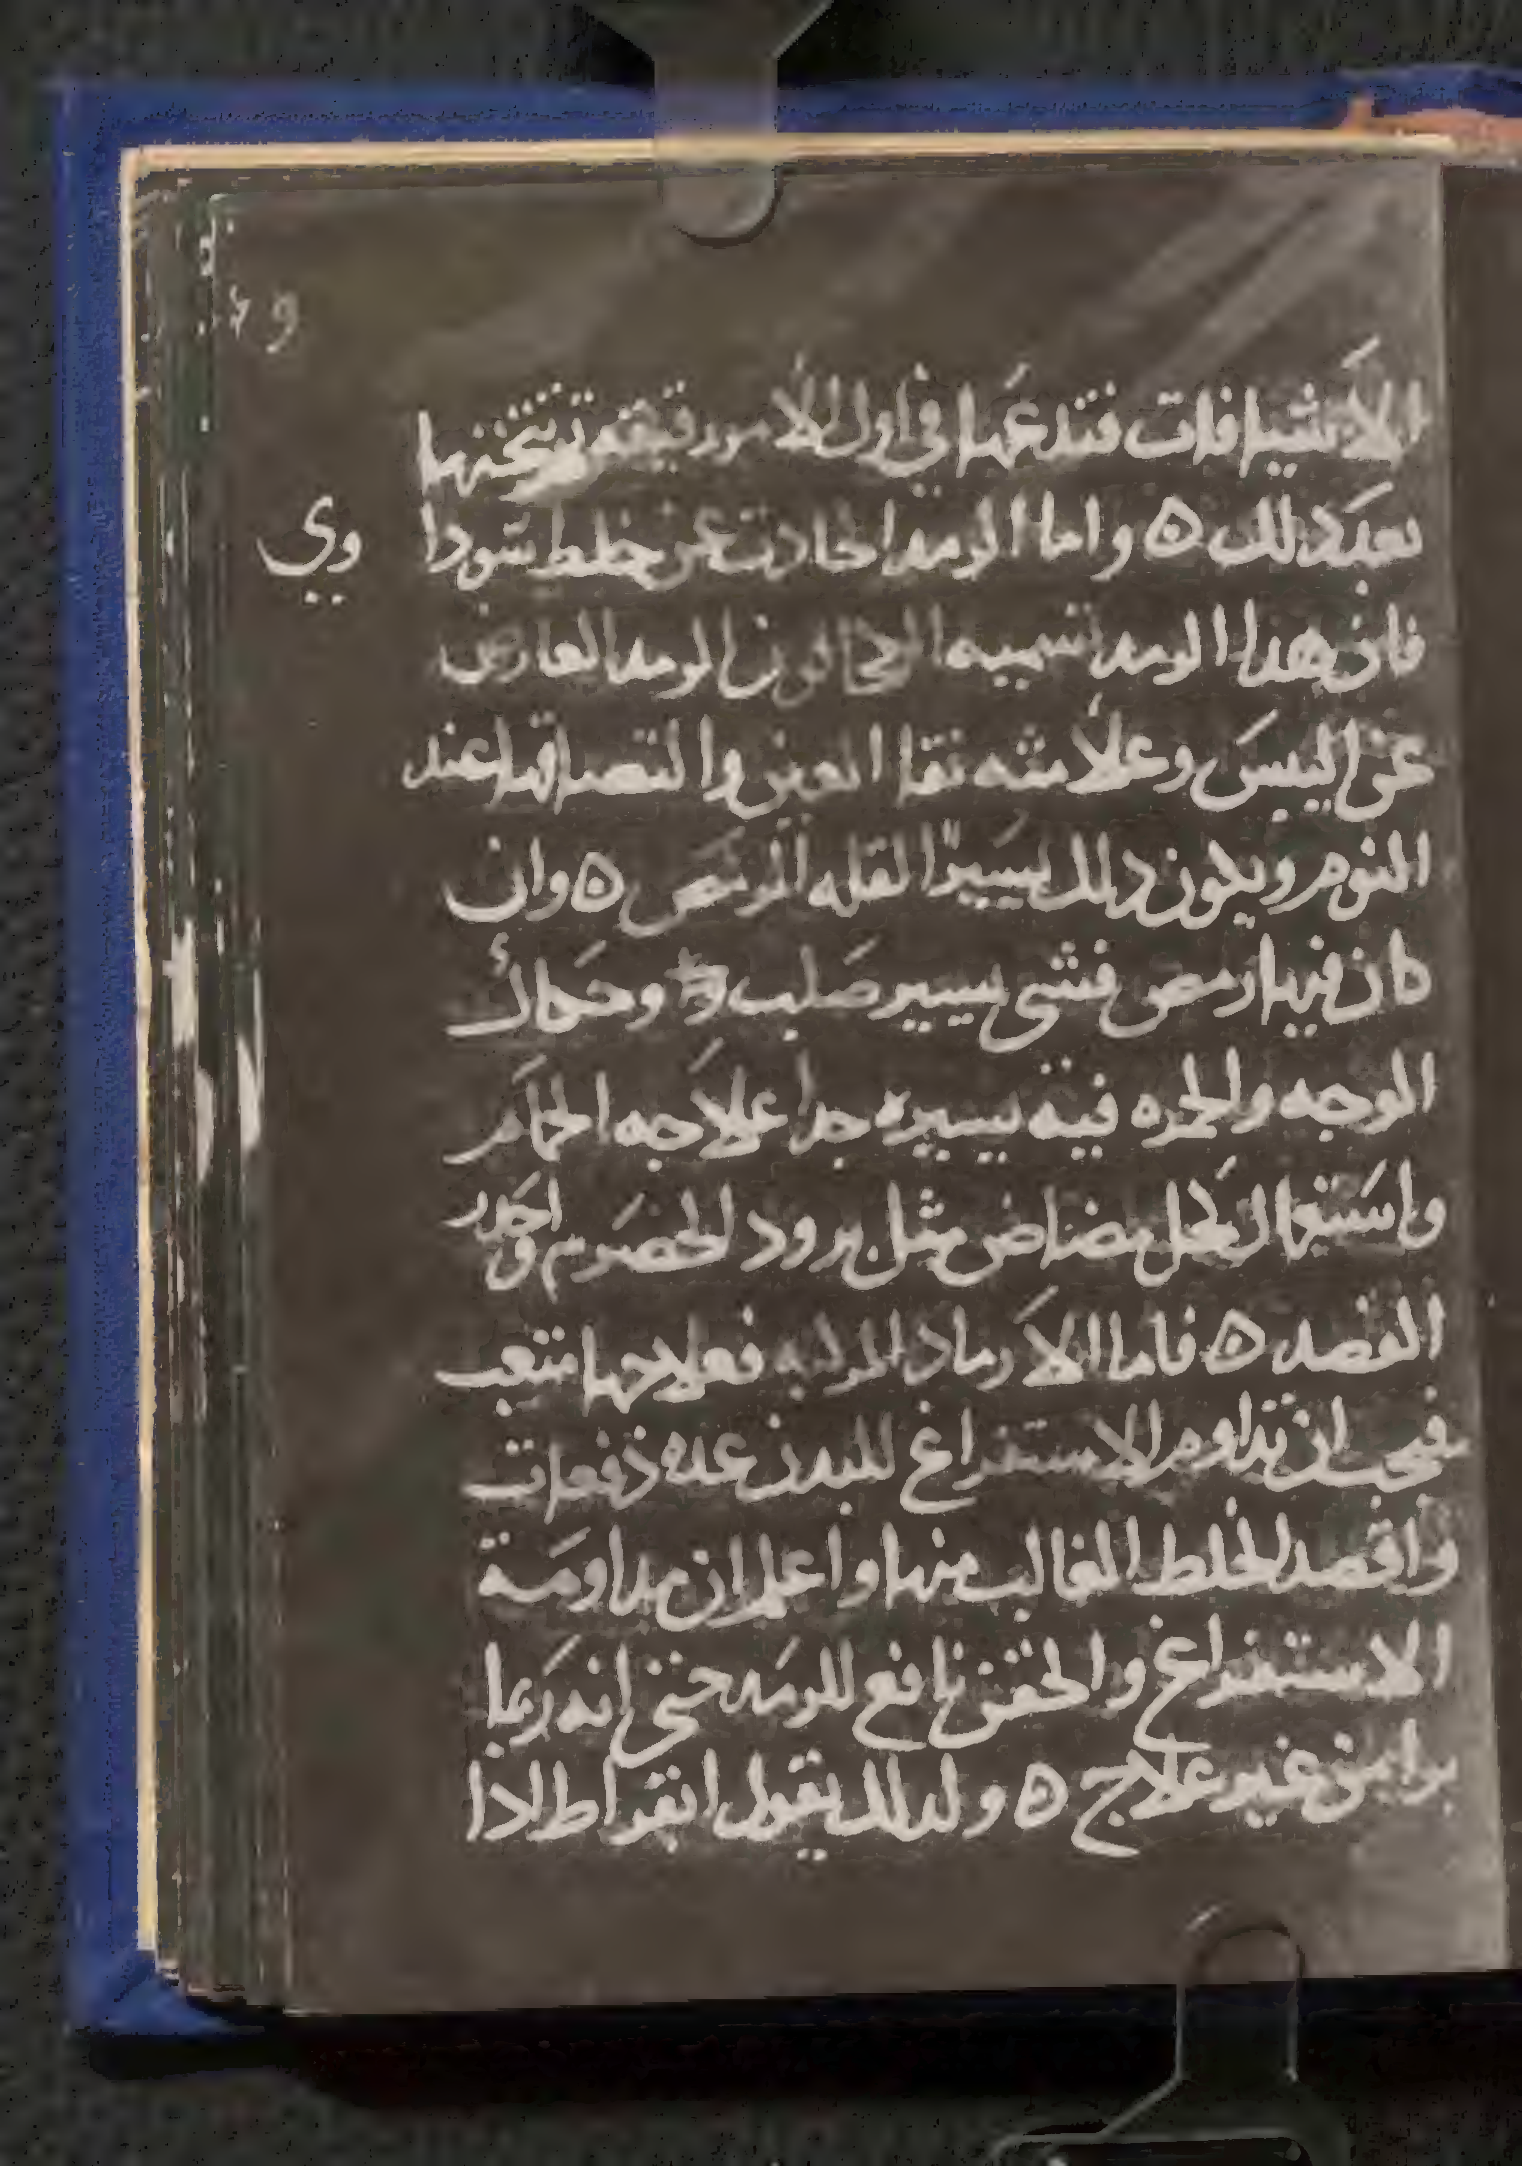 الاشيافات فتدعها في اول الامر رقيقه ثم تثخنها
بعد ذلك ه واما الرمد الحادث عن خلط سودا
وي
فان هذا الرمد تسميه الكحالون الرمد العارض
عن اليبس وعلامته نقا العين والتصاقها عند
النوم ويكون ذلك يسيرا لقله الرمص ه وان
كان فيها رمص فشي يسير صلب وحكاك
الوجه والحمره فيه يسيره جدا علاجه الحمام
واستعمال كحل مضاض مثل برود الحصرم واحدر
الفصد ه فاما الارماد المركبه فعلاجها متعب
فيجب ان تداوم الاستفراغ للبدن عده دفعات
واقصد الخلط الغالب منها واعلم ان مداومة
الاستفراغ والحقن نافع للرمد حتى انه ربما
برا من غير علاج ه ولذلك يقول ابقراط اذا